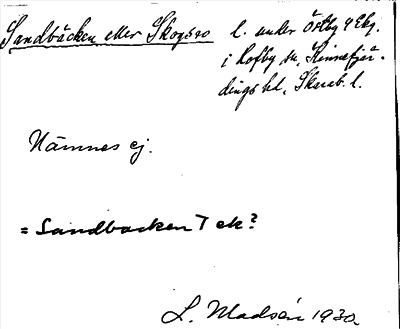 Sandbäcken eller Skogsro l. under Örtby 4 Ekg.
i Kofby sn, Kinnefjär-
dings hd, Skarab. l.
Nämnes ej.
= Sandbacken T ek?
L. Madsén 1930